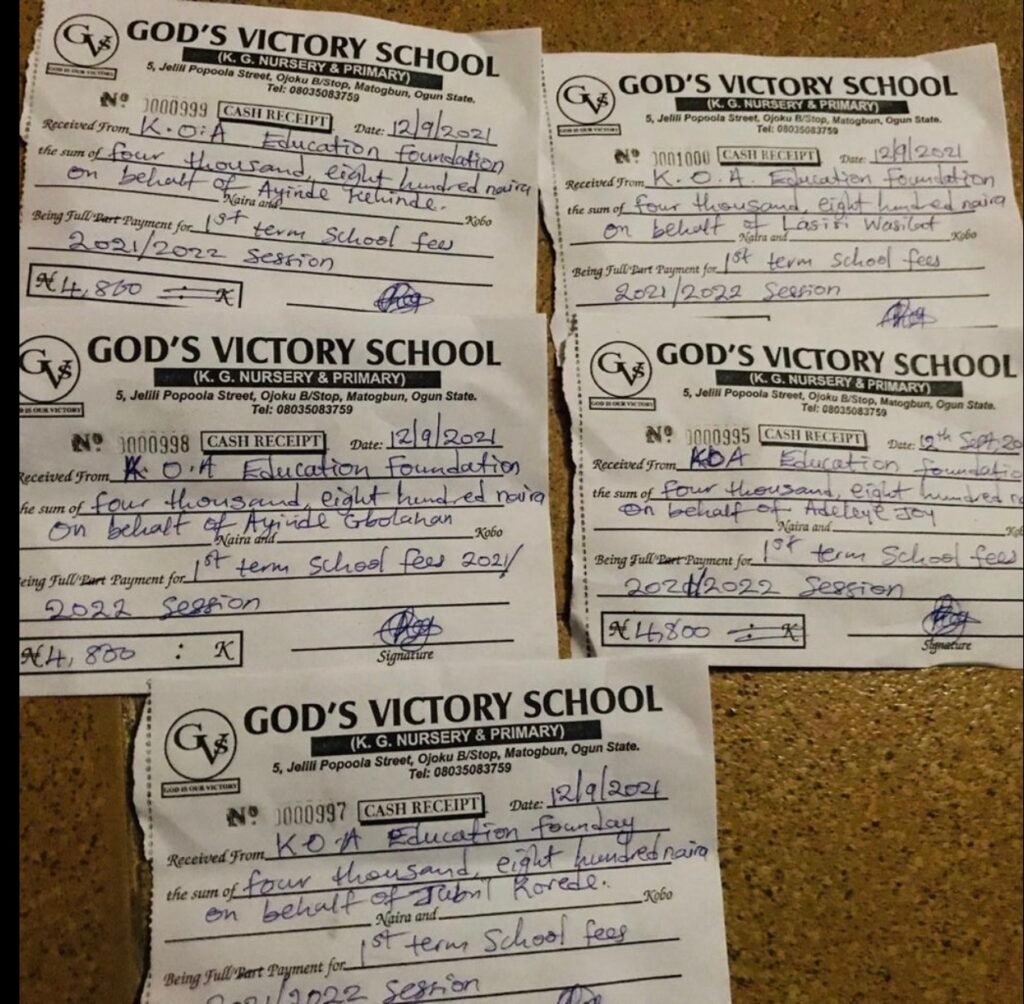 GVS
GOD IS OUR VICTORY
GOD'S VICTORY SCHOOL
(K. G. NURSERY & PRIMARY)
5, Jelili Popoola Street, Ojoku B/Stop, Matogbun, Ogun State.
Tel: 08035083759
Nº 0000999 CASH RECEIPT Date: 12/9/2021
Received From K.O.A Education Foundation
the sum of four thousand, eight hundred naira
on behalf of Ayinde Kehinde.
Naira and Kobo
Being Full/Part Payment for 1st term School fees
2021/2022 Session
₦4,800 : K
GVS
GOD IS OUR VICTORY
GOD'S VICTORY SCHOOL
(K. G. NURSERY & PRIMARY)
5, Jelili Popoola Street, Ojoku B/Stop, Matogbun, Ogun State.
Tel: 08035083759
Nº 0001000 CASH RECEIPT Date: 12/9/2021
Received From K.O.A. Education Foundation
the sum of four thousand, eight hundred naira
on behalf of Lasisi Wasilat
Naira and Kobo
Being Full/Part Payment for 1st term School fees
2021/2022 Session
GVS
GOD IS OUR VICTORY
GOD'S VICTORY SCHOOL
(K. G. NURSERY & PRIMARY)
5, Jelili Popoola Street, Ojoku B/Stop, Matogbun, Ogun State.
Tel: 08035083759
Nº 0000998 CASH RECEIPT Date: 12/9/2021
Received From K.O.A Education Foundation
he sum of four thousand, eight hundred naira
on behalf of Ayinde Gbolahan
Naira and Kobo
eing Full/Part Payment for 1st term School fees 2021/
2022 Session
₦4,800 : K
Signature
GVS
GOD IS OUR VICTORY
GOD'S VICTORY SCHOOL
(K. G. NURSERY & PRIMARY)
5, Jelili Popoola Street, Ojoku B/Stop, Matogbun, Ogun State.
Tel: 08035083759
Nº 0000995 CASH RECEIPT Date: 12th Sept, 20
Received From KOA Education foundatio
the sum of four thousand, eight hundred na
on behalf of Adeleye Joy
Naira and Ko
Being Full/Part Payment for 1st term School fees
2021/2022 Session
₦4,800 : K
Signature
GVS
GOD IS OUR VICTORY
GOD'S VICTORY SCHOOL
(K. G. NURSERY & PRIMARY)
5, Jelili Popoola Street, Ojoku B/Stop, Matogbun, Ogun State.
Tel: 08035083759
Nº 0000997 CASH RECEIPT Date: 12/9/2021
Received From K.O.A Education Founday
the sum of four thousand, eight hundred naira
on behalf of Jubril Korede.
Naira and Kobo
Being Full/Part Payment for 1st term School fees
2021/2022 Session